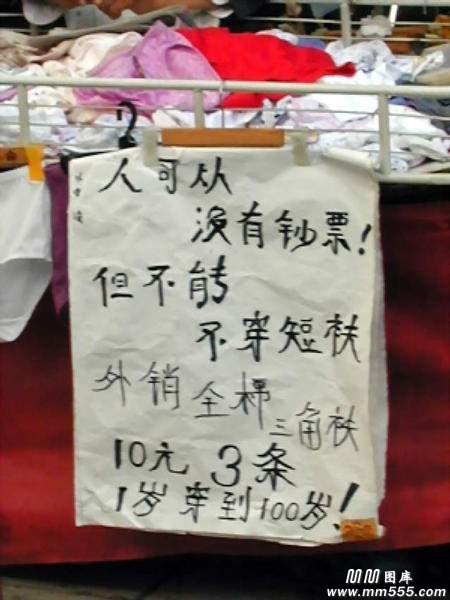 人可从
没有钞票!
但不能
不穿短袂
外销全棉
三角袂
10元 3条
1岁穿到100岁!
MM图库
www.mm555.com